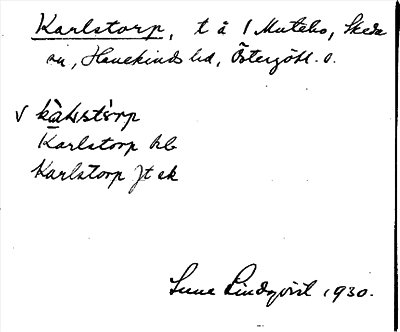 Karlstorp, t å 1 Mutebo, Skeda
sn, Hanekinds hd, Östergötl. l.
v kàlstòrp
Karlstorp hb
Karlstorp Jt ek
Sune Lindqvist 1930.